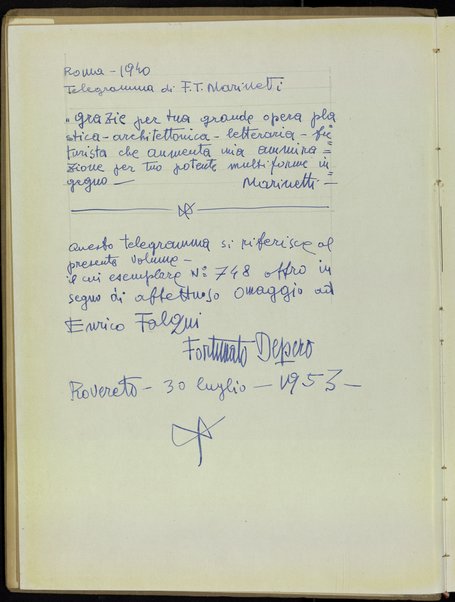 Roma - 1940
Telegramma di F.T. Marinetti
"grazie per tua grande opera pla
stica - architettonica - letteraria - fu
turista che aumenta mia ammira=
zione per tuo potente multiforme in=
gegno — Marinetti —
Questo telegramma si riferisce al
presente volume -
il cui esemplare N° 748 offro in
segno di affettuoso omaggio ad
Enrico Falqui
Fortunato Depero
Rovereto - 30 luglio - 1953 -